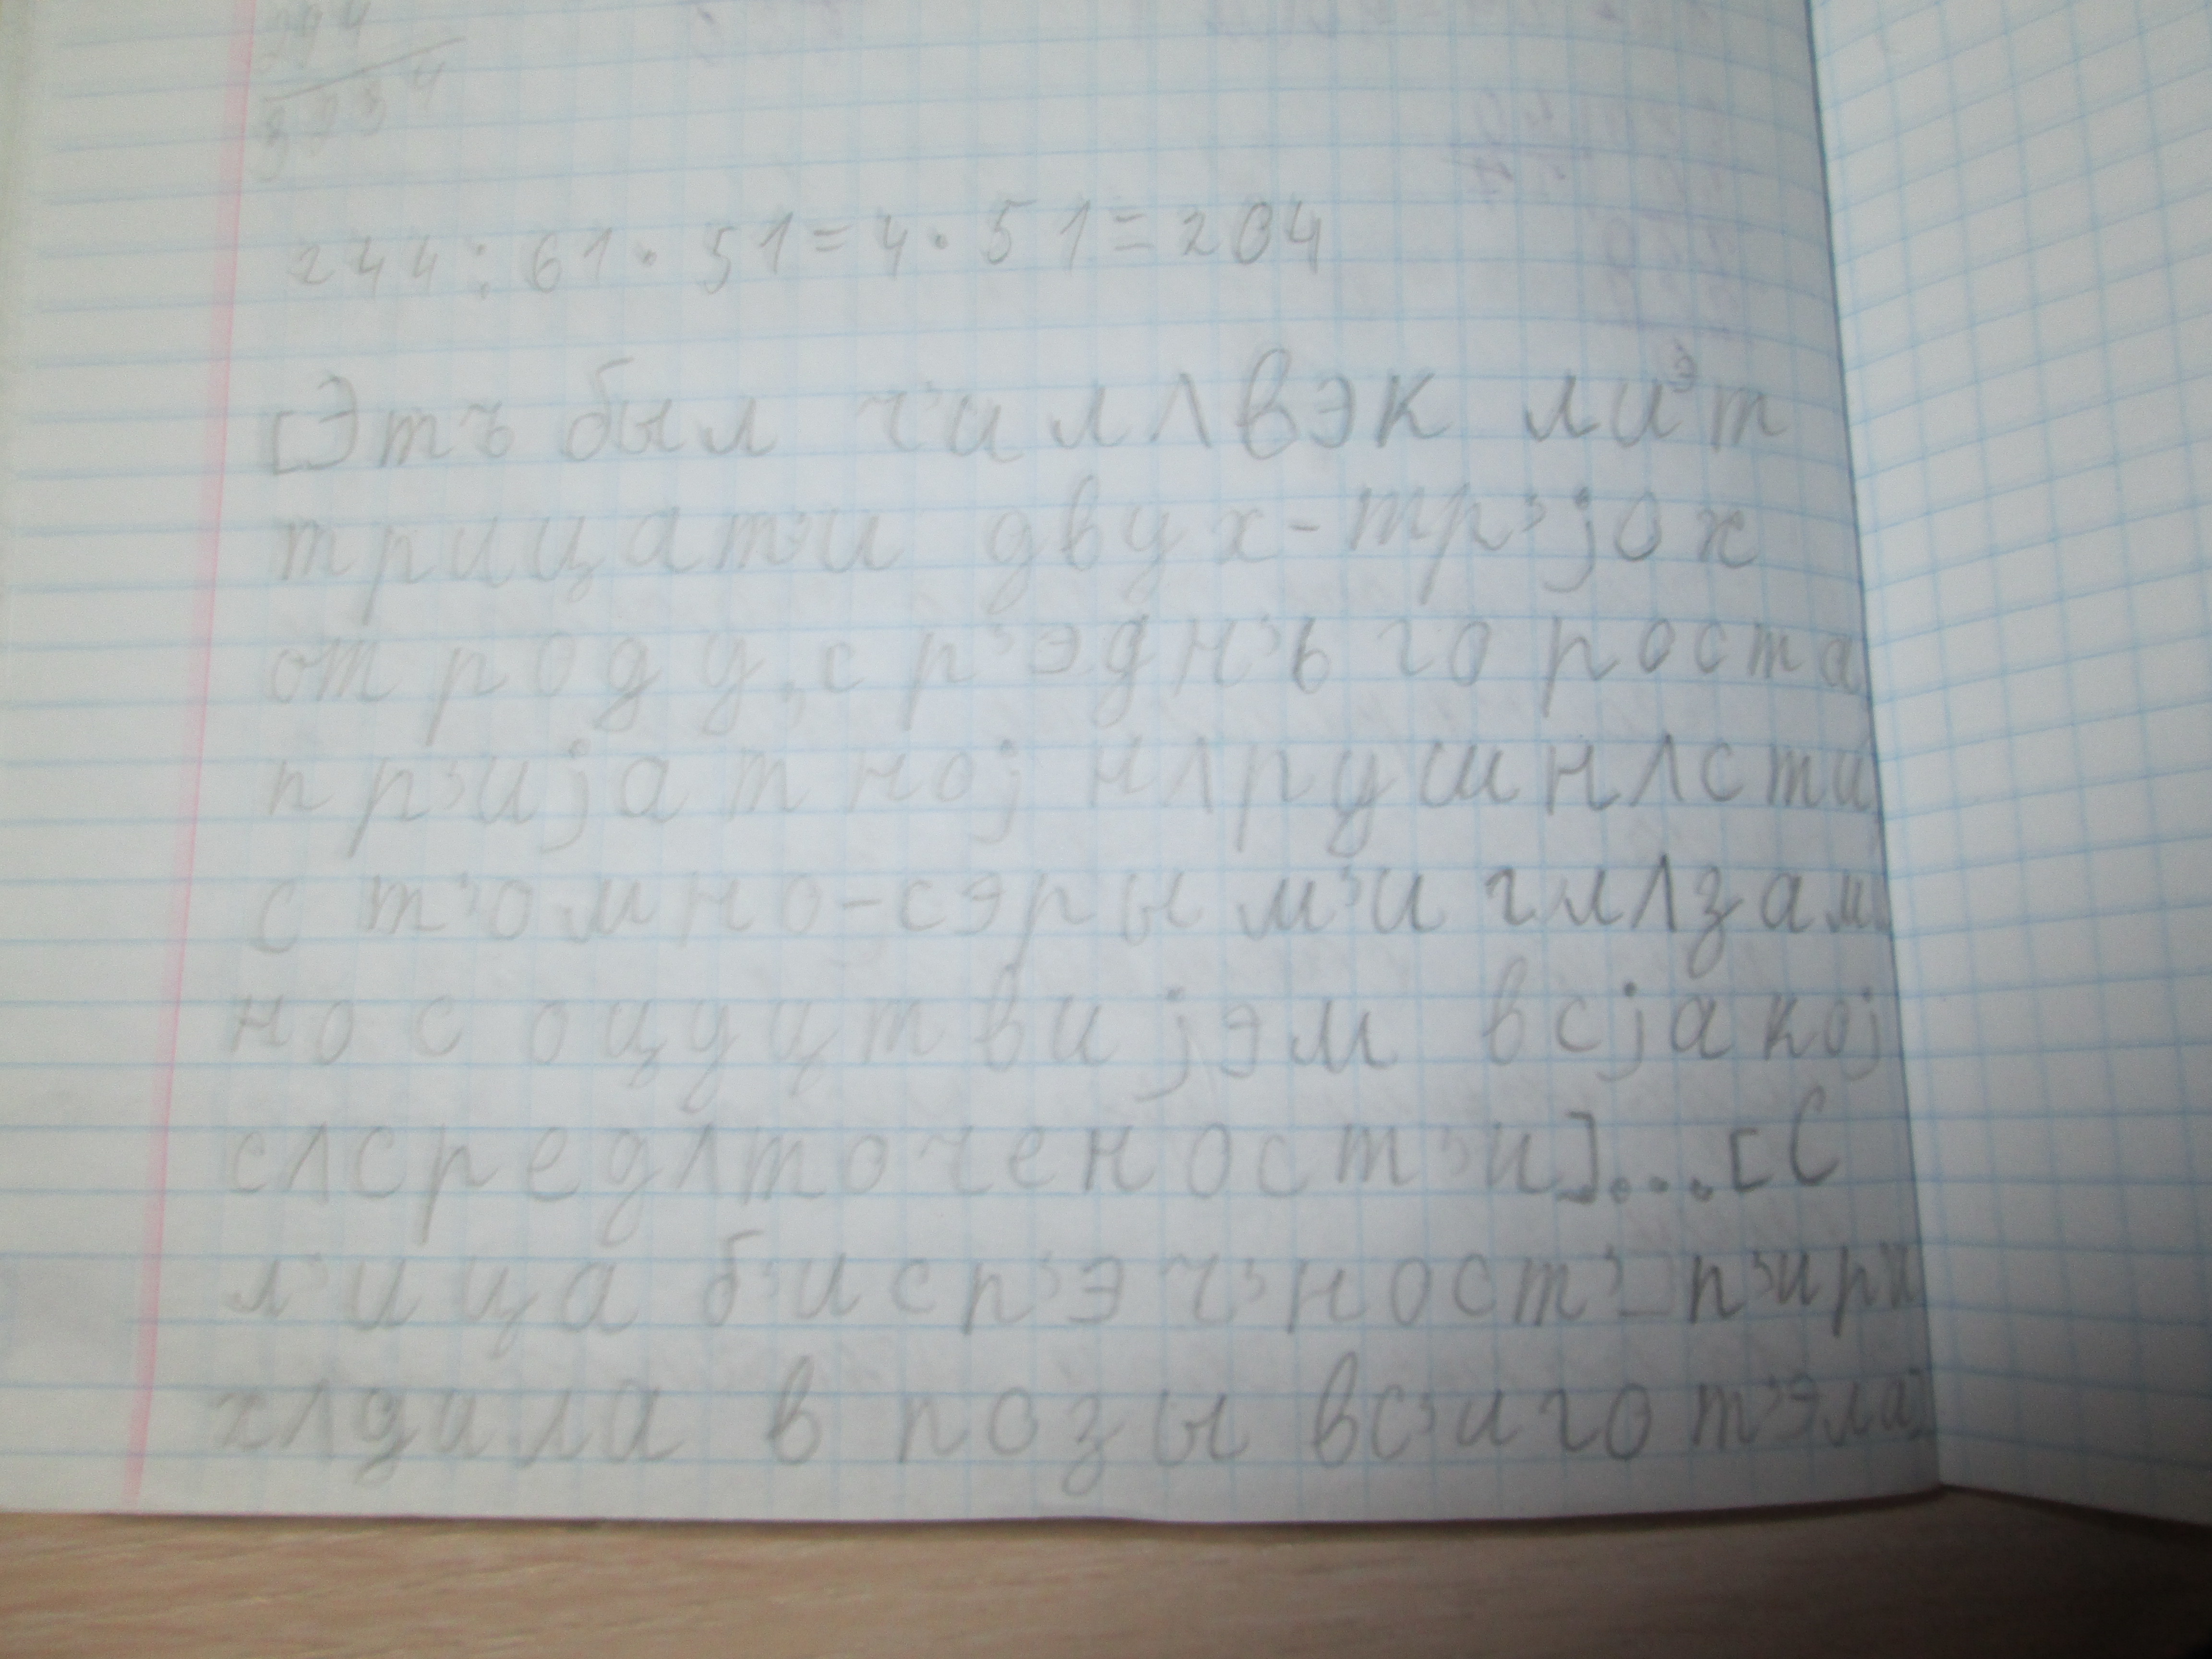 244
3234
244:61·51=4·51=204
[Этъ был ч'илʌвэк лиэт
трицат'и двух-тр'јох
от роду, ср'эдн'ьго роста
пр'ијатној нʌрушнʌсти
с т'омно-сэрым'и глʌзам
но с оцуцтвијэм всјакој
сʌсредʌточеност'и]...[С
л'ица б'исп'эч'ност'-п'ирʌ
хʌдила в позы вс'иго т'эла]